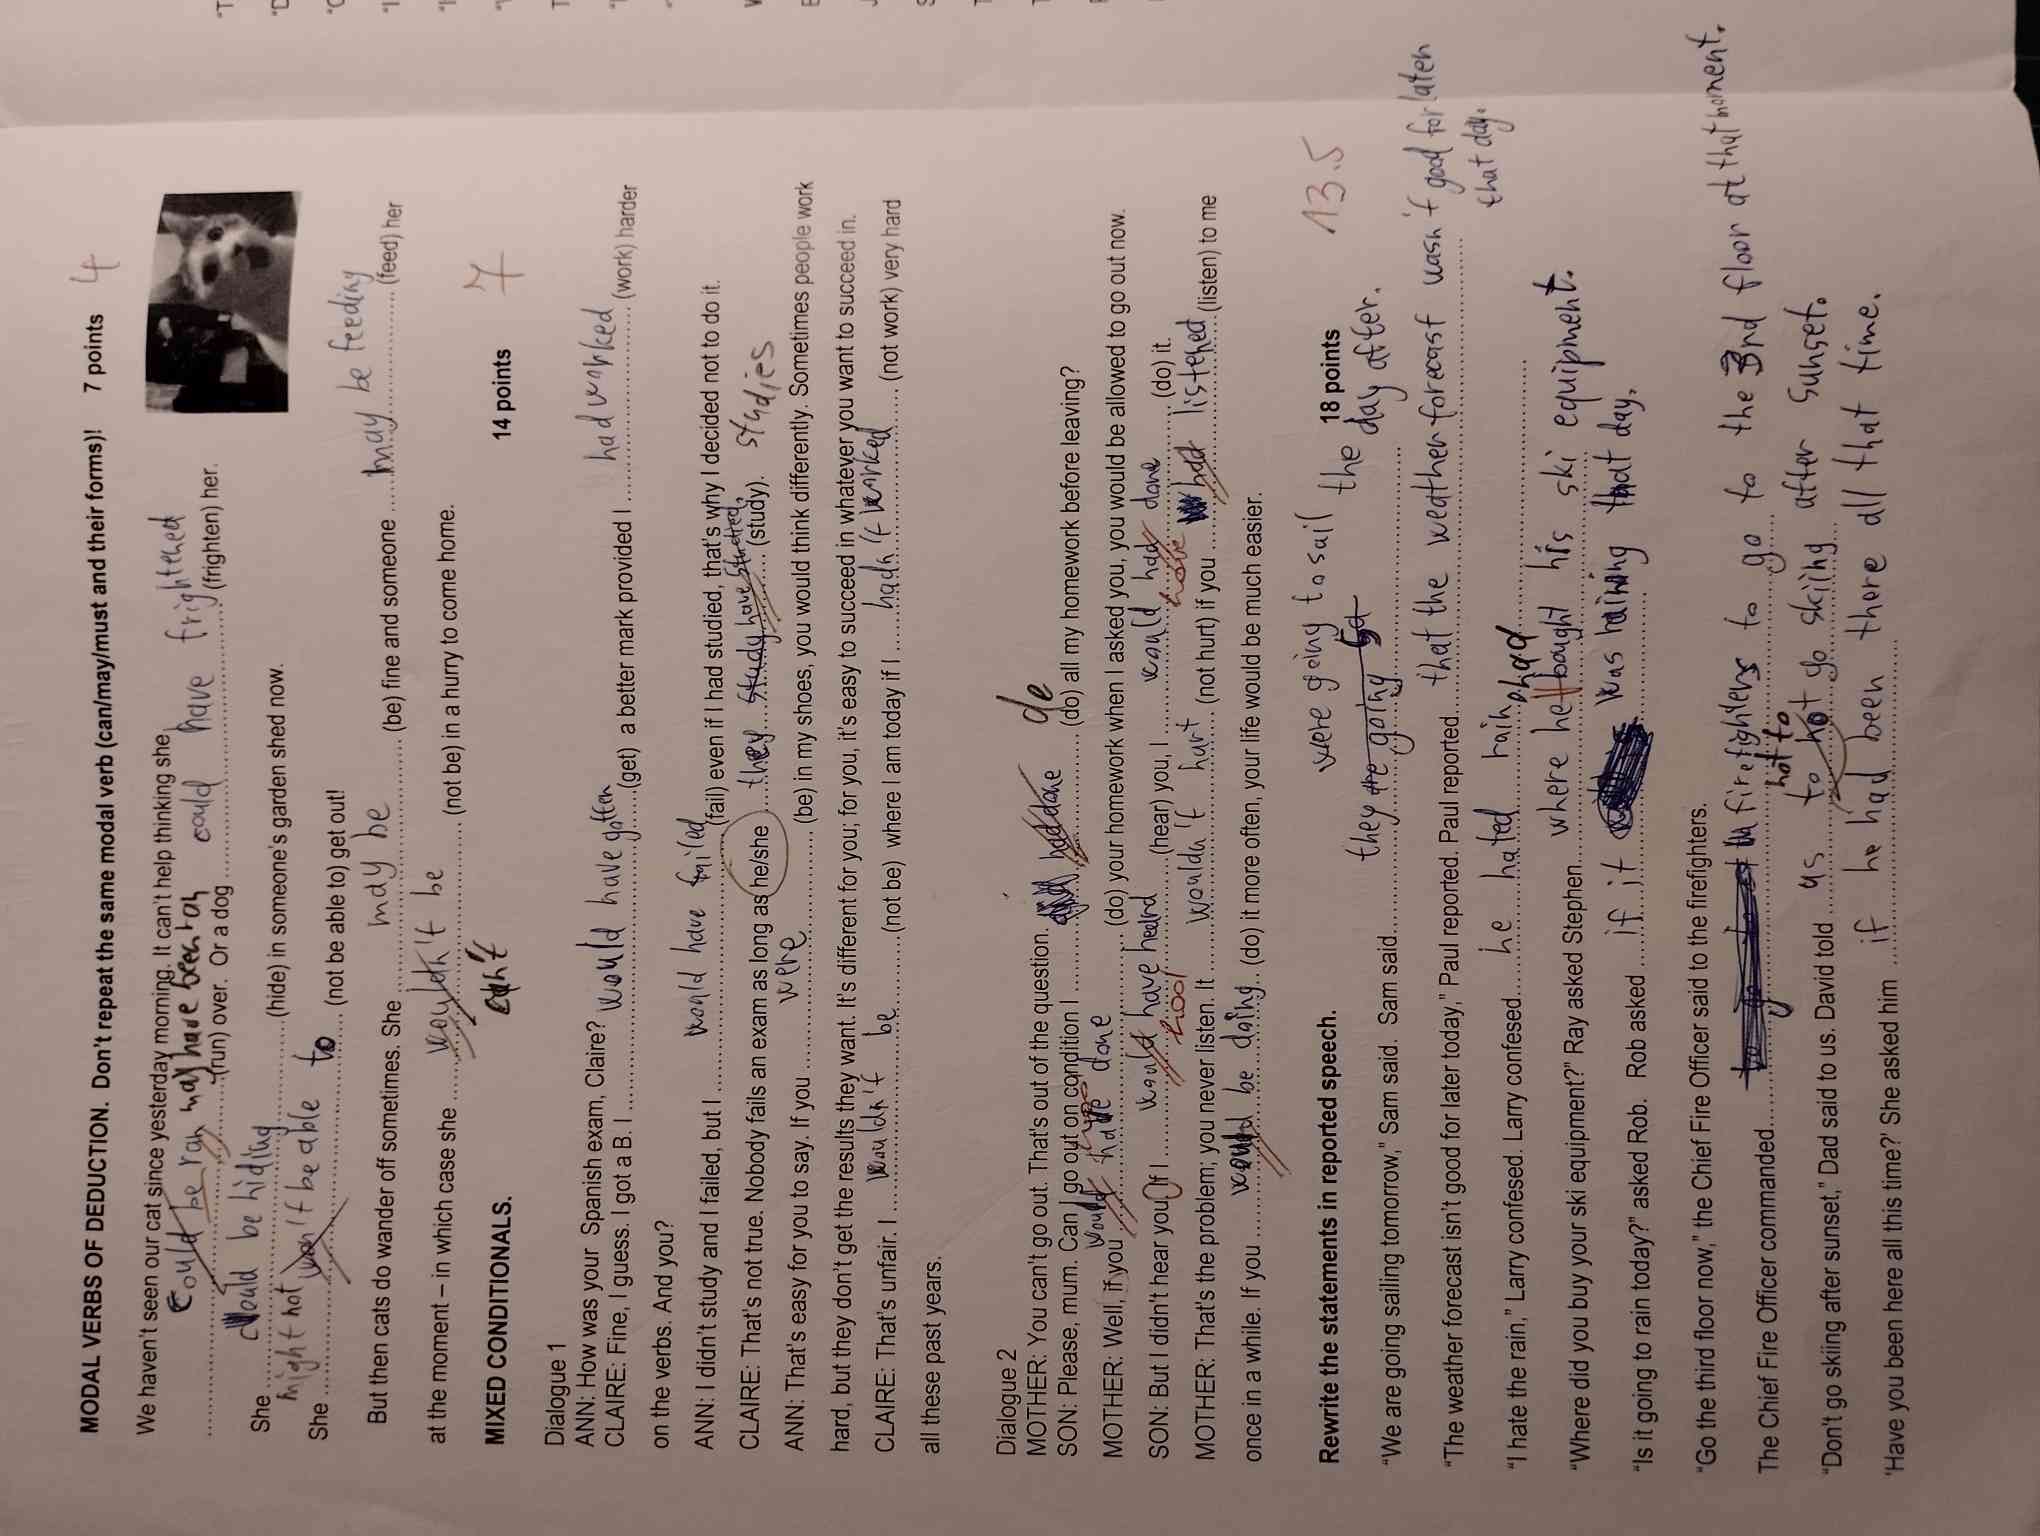 MODAL VERBS OF DEDUCTION. Don't repeat the same modal verb (can/may/must and their forms)! 7 points 4
We haven't seen our cat since yesterday morning. It can't help thinking she
could be ran may have been ran could have frightened
(run) over. Or a dog (frighten) her.
She could be hiding (hide) in someone's garden shed now.
might not won't be able to
She (not be able to) get out!
But then cats do wander off sometimes. She may be (be) fine and someone may be feeding (feed) her
at the moment – in which case she wouldn't be (not be) in a hurry to come home.
can't
MIXED CONDITIONALS. 14 points 7
Dialogue 1
ANN: How was your Spanish exam, Claire?
CLAIRE: Fine, I guess. I got a B. I would have gotten (get) a better mark provided I had worked (work) harder
on the verbs. And you?
ANN: I didn't study and I failed, but I would have failed (fail) even if I had studied, that's why I decided not to do it.
CLAIRE: That's not true. Nobody fails an exam as long as he/she they study have studied. (study). studies
ANN: That's easy for you to say. If you were (be) in my shoes, you would think differently. Sometimes people work
hard, but they don't get the results they want. It's different for you; for you, it's easy to succeed in whatever you want to succeed in.
CLAIRE: That's unfair. I wouldn't be (not be) where I am today if I hadn't worked (not work) very hard
all these past years.
Dialogue 2
MOTHER: You can't go out. That's out of the question.
SON: Please, mum. Can I go out on condition I had done do (do) all my homework before leaving?
MOTHER: Well, if you would have done (do) your homework when I asked you, you would be allowed to go out now.
SON: But I didn't hear you. If I would have heard (hear) you, I would had done (do) it.
had have
MOTHER: That's the problem; you never listen. It wouldn't hurt (not hurt) if you had listened (listen) to me
once in a while. If you would be doing (do) it more often, your life would be much easier.
Rewrite the statements in reported speech. 18 points 13.5
were going to sail the day after.
"We are going sailing tomorrow," Sam said. Sam said they are going
"The weather forecast isn't good for later today," Paul reported. Paul reported that the weather forecast wasn't good for later
that day.
"I hate the rain," Larry confesed. Larry confesed he hated rain.
had
"Where did you buy your ski equipment?" Ray asked Stephen where he bought his ski equipment.
"Is it going to rain today?" asked Rob. Rob asked if it was raining that day.
"Go the third floor now," the Chief Fire Officer said to the firefighters.
The Chief Fire Officer commanded firefighters to go to the 3rd floor at that moment.
not to
"Don't go skiing after sunset," Dad said to us. David told us to not go skiing after sunset.
'Have you been here all this time?' She asked him if he had been there all that time.